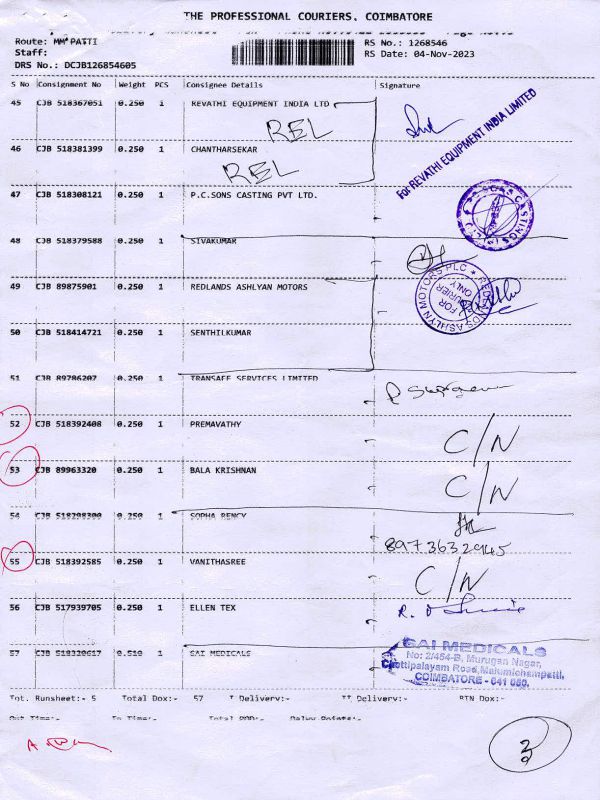 THE PROFESSIONAL COURIERS. COIMBATORE
Route: MM PATTI
RS No.: 1268546
Staff:
RS Date: 04-Nov-2023
DRS No.: DCJB126854605
S No Consignment No Weight PCS Consignee Details Signature
45 CJB 518367051 0.250 1 REVATHI EQUIPMENT INDIA LTD
REL
For REVATHI EQUIPMENT INDIA LIMITED
46 CJB 518381399 0.250 1 CHANTHARSEKAR
REL
47 CJB 518308121 0.250 1 P.C.SONS CASTING PVT LTD.
CASTINGS
48 CJB 518379588 0.250 1 SIVAKUMAR
49 CJB 89875901 0.250 1 REDLANDS ASHLYAN MOTORS
REDLANDS ASHLYN MOTORS PLC
FOR
COURIER
ONLY
50 CJB 518414721 0.250 1 SENTHILKUMAR
51 CJB 89786207 0.250 1 TRANSAFE SERVICES LIMITED
52 CJB 518392408 0.250 1 PREMAVATHY
C/N
53 CJB 89963320 0.250 1 BALA KRISHNAN
C/N
54 CJB 518298300 0.250 1 SOPHA BENCY
8973632945
55 CJB 518392585 0.250 1 VANITHASREE
C/N
56 CJB 517939705 0.250 1 ELLEN TEX
57 CJB 518320617 0.510 1 SAI MEDICALS
SAI MEDICALS
No: 2/454-B, Murugan Nagar,
Chottipalayam Road, Malumichampatti,
COIMBATORE - 641 050.
Tot. Runsheet:- 5 Total Dox:- 57 I Delivery:- II Delivery:- RTN Dox:-
Out Time:- In Time:-